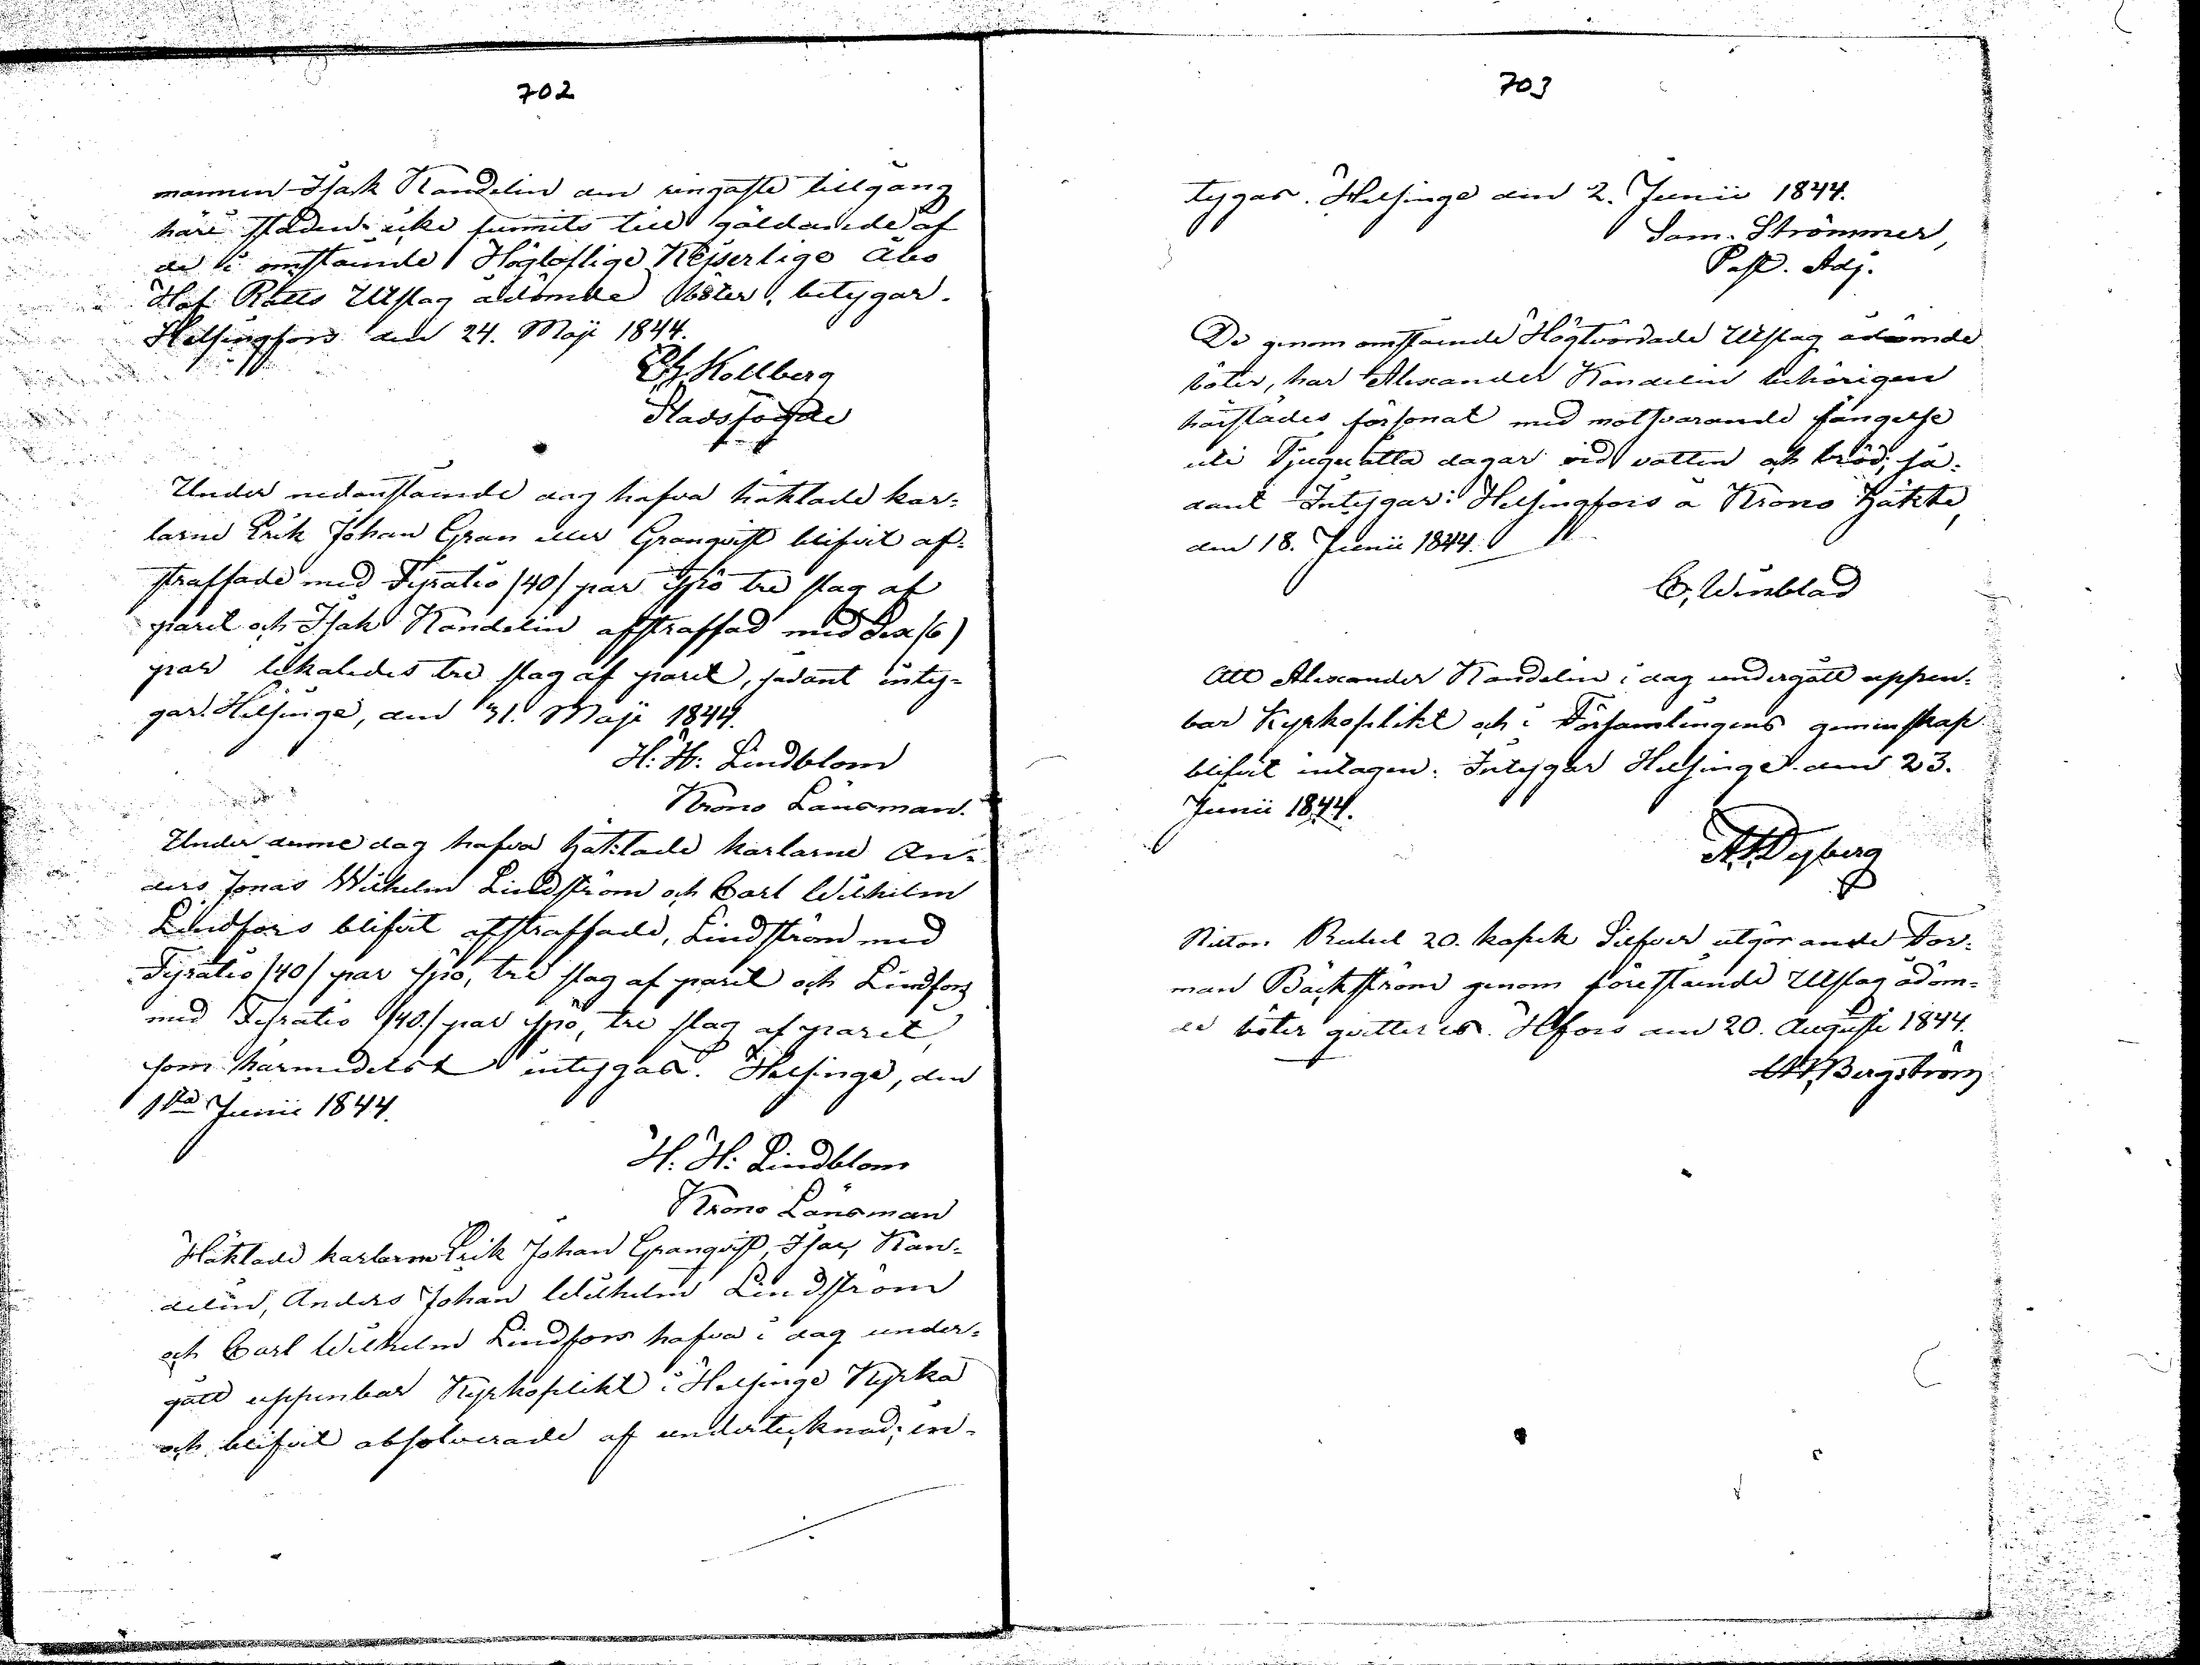 702
mannen Isak Kandelin den ringaste tillgång
här i staden icke funnits till gäldande af
de i omstående Högloflige Kejserlige Åbo
Hof Rätts Utslag ådömde böter, betygar.
Helsingfors den 24. Maji 1844.
Kollberg
Stadsfogde
Under nedanstående dag hafva häktade kar-
larne Erik Johan Gran eller Granqvist blifvit af-
straffade med Fyratio /40/ par spö tre slag af
paret och Isak Kandelin afstraffad med Sex /6/
par likaledes tre slag af paret, sådant inty-
gar. Helsinge, den 31. Maji 1844.
H: H: Lindblom
Krono Länsman.
Under denne dag hafva häktade karlarne An-
ders Jonas Wilhelm Lindström och Carl Wilhelm
Lindfors blifvit afstraffade, Lindström med
Fyratio /40/ par spö, tre slag af paret och Lindfors
med Fyratio /40./ par spö, tre slag af paret,
som härmedelst intygas. Helsinge, den
1sta Junii 1844.
H: H: Lindblom
Krono Länsman
Häktade karlarne Erik Johan Granqvist, Isac Kan-
delin, Anders Johan Wilhelm Lindström
och Carl Wilhelm Lindfors hafva i dag under-
gått uppenbar Kyrkoplikt i Helsinge Kyrka
och blifvit absolverade af undertecknad; in-
703
tygas. Helsinge den 2. Junii 1844.
Sam. Strömmer,
Past. Adj.
De genom omstående Högtvördade Utslag ådömde
böter, har Alexander Kandelin behörigen
härstädes försonat med motsvarande fängelse
uti Tjuguåtta dagar vid vatten och bröd; så-
dant Intygar: Helsingfors å Krono Häkte,
den 18. Junii 1844.
C. Winblad
Att Alexander Kandelin i dag undergått uppen-
bar Kyrkoplikt och i Församlingens gemenskap
blifvit intagen. Intygar Helsinge den 23.
Junii 1844.
Dyberg
Nitton Rubel 20. kopek Silfver utgörande For-
man Bäckström genom förestående Utslag ådöm-
de böter qvitteras. Hfors den 20. Augusti 1844.
Bergström